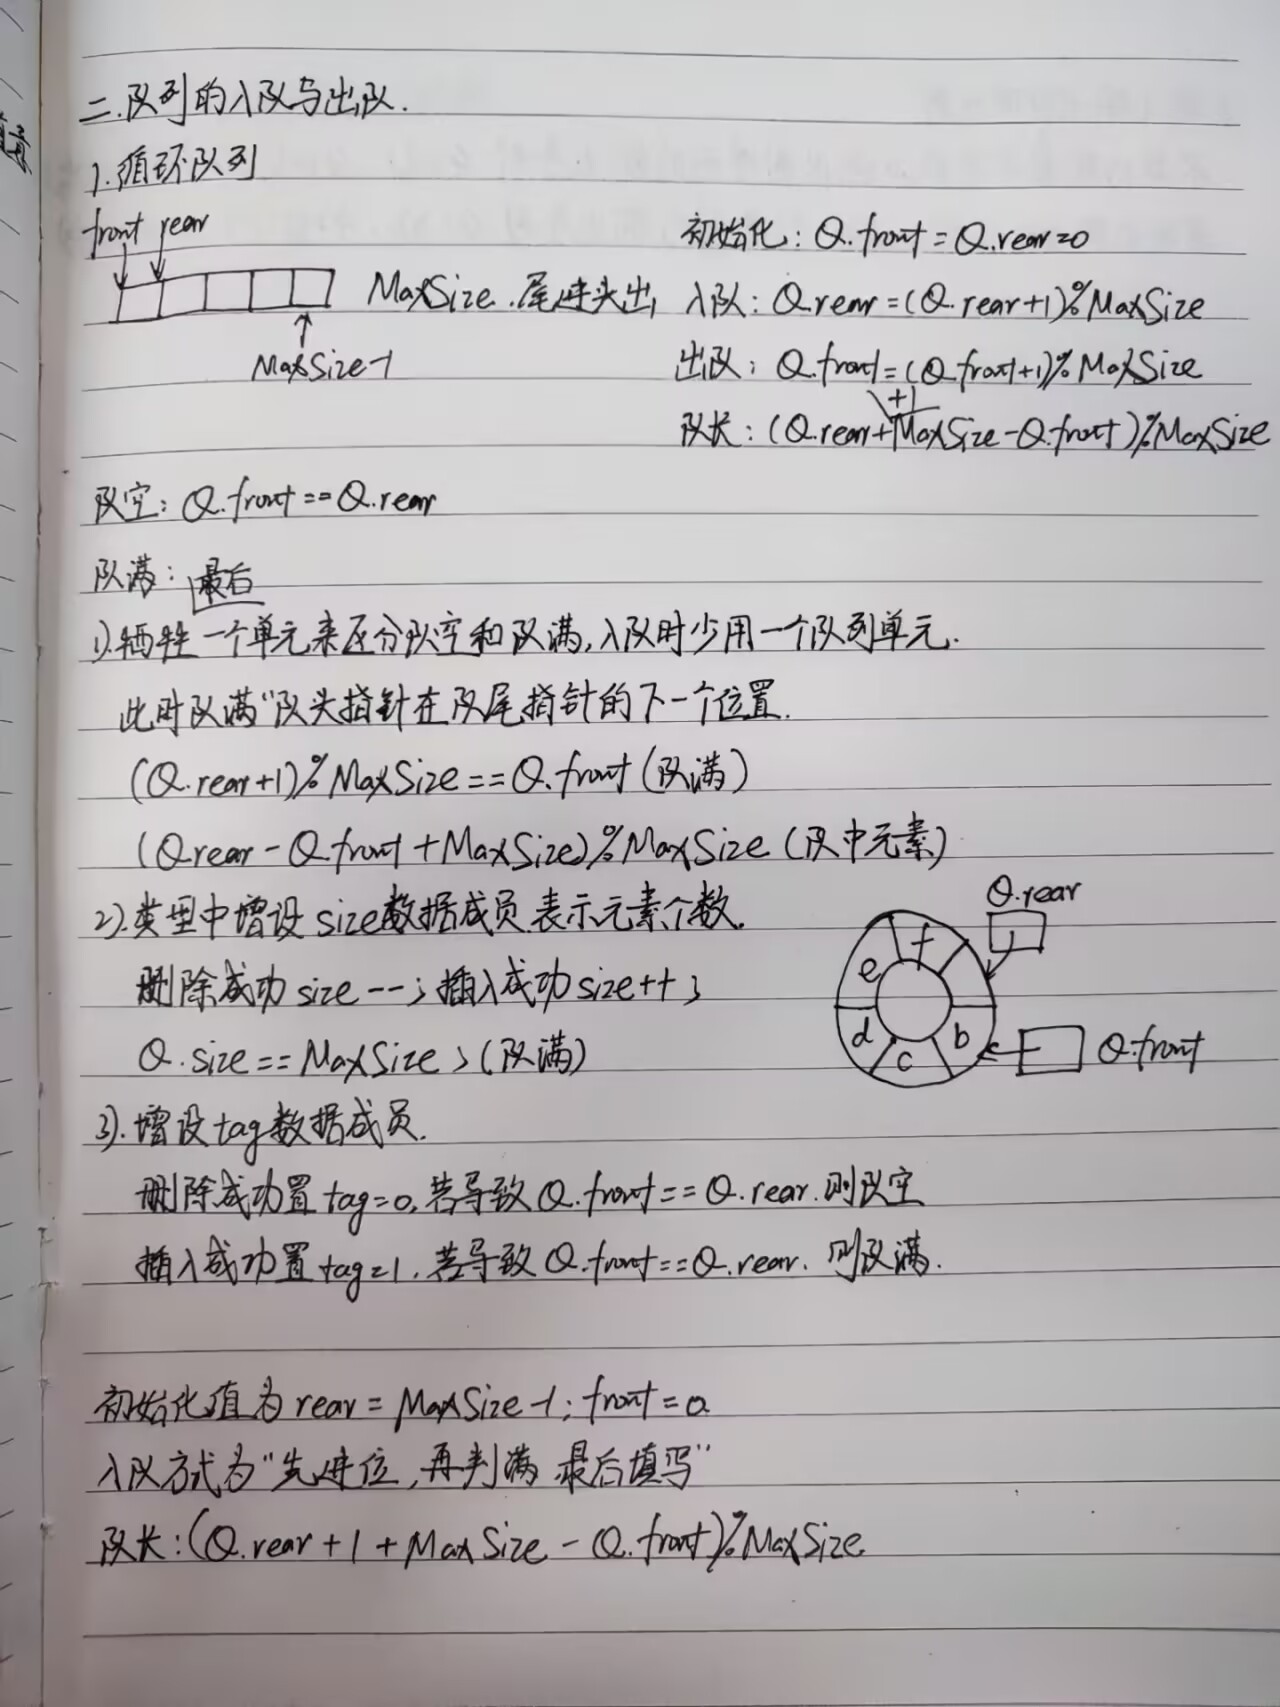 二.队列的入队与出队.
1.循环队列
front rear
初始化: Q.front=Q.rear=0
MaxSize.尾进头出
入队: Q.rear=(Q.rear+1)%MaxSize
MaxSize-1
出队: Q.front=(Q.front+1)%MaxSize
+1
队长: (Q.rear+MaxSize-Q.front)%MaxSize
队空: Q.front==Q.rear
队满: 最后
1).牺牲一个单元来区分队空和队满,入队时少用一个队列单元.
此时队满“队头指针在队尾指针的下一个位置.
(Q.rear+1)%MaxSize==Q.front(队满)
(Q.rear-Q.front+MaxSize)%MaxSize(队中元素)
2).类型中增设size数据成员表示元素个数.
删除成功size--;插入成功size++;
Q.size==MaxSize;(队满)
Q.rear
f
e
d
b
c
Q.front
3).增设tag数据成员.
删除成功置tag=0,若导致Q.front==Q.rear.则队空
插入成功置tag=1,若导致Q.front==Q.rear.则队满.
初始化值为rear=MaxSize-1;front=0
入队方式为“先进位,再判满 最后填写”
队长:(Q.rear+1+MaxSize-Q.front)%MaxSize